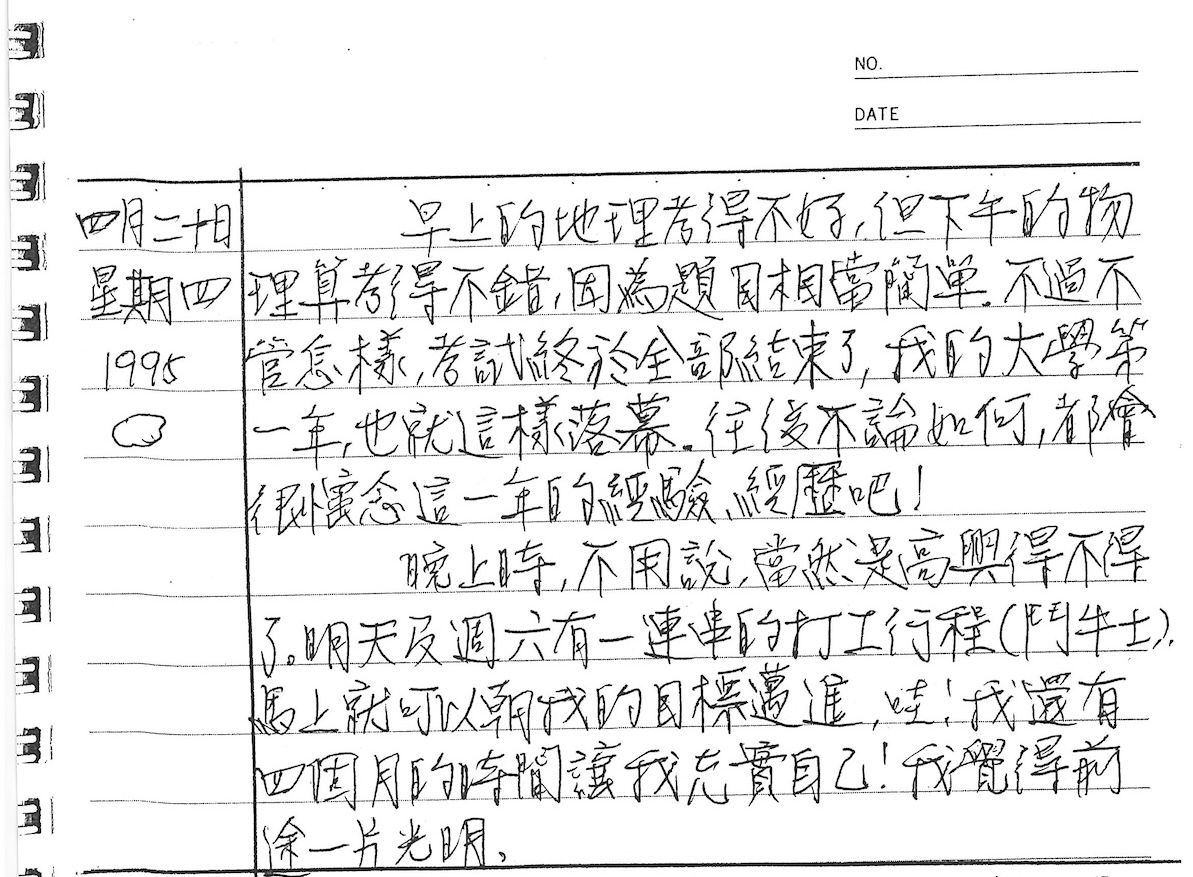 NO.
DATE
四月二十日
星期四
1995
早上的地理考得不好,但下午的物
理算考得不錯,因為題目相當簡單.不過不
管怎樣,考試終於全部結束了,我的大學第
一年,也就這樣落幕.往後不論如何,都會
很懷念這一年的經驗、經歷吧!
晚上時,不用說,當然是高興得不得
了。明天及週六有一連串的打工行程(鬥牛士),
馬上就可以朝我的目標邁進,哇!我還有
四個月的時間讓我充實自己!我覺得前
途一片光明.